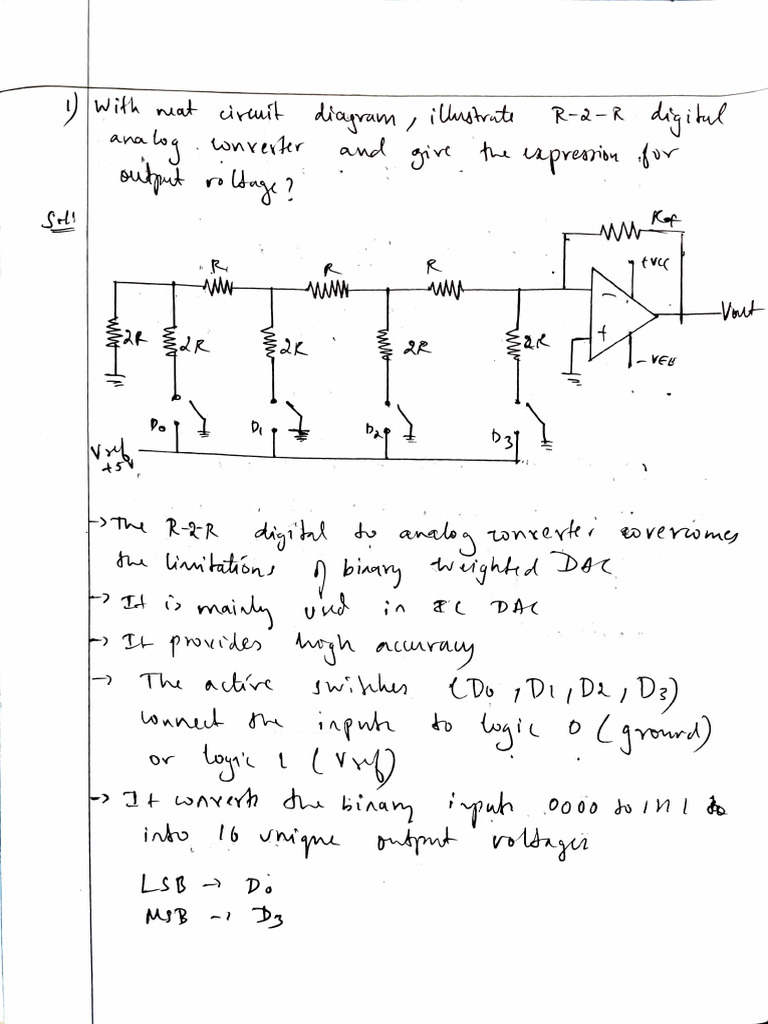 1) With neat circuit diagram, illustrate R-2-R digital
analog converter and give the expression for
output voltage?
Sol:
R R R Rof
+VCC
Vout
2R 2R 2R 2R 2R
-VEE
D0 D1 D2 D3
Vref
+5V
→ The R-2-R digital to analog converter overcomes
the limitations of binary weighted DAC
→ It is mainly used in IC DAC
→ It provides high accuracy
→ The active switches (D0, D1, D2, D3)
connect the inputs to logic 0 (ground)
or logic 1 (Vref)
→ It converts the binary inputs 0000 to 1111
into 16 unique output voltages
LSB → D0
MSB → D3